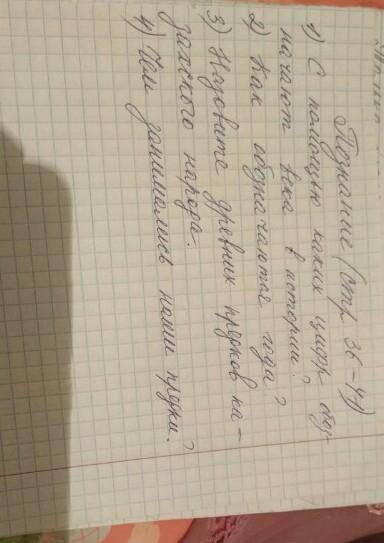 Познание (стр 36-41)
1) С помощью каких цифр обоз-
начают века в истории?
2) Как обозначаются года?
3) Назовите древних предков ка-
захского народа.
4) Чем занимались наши предки?